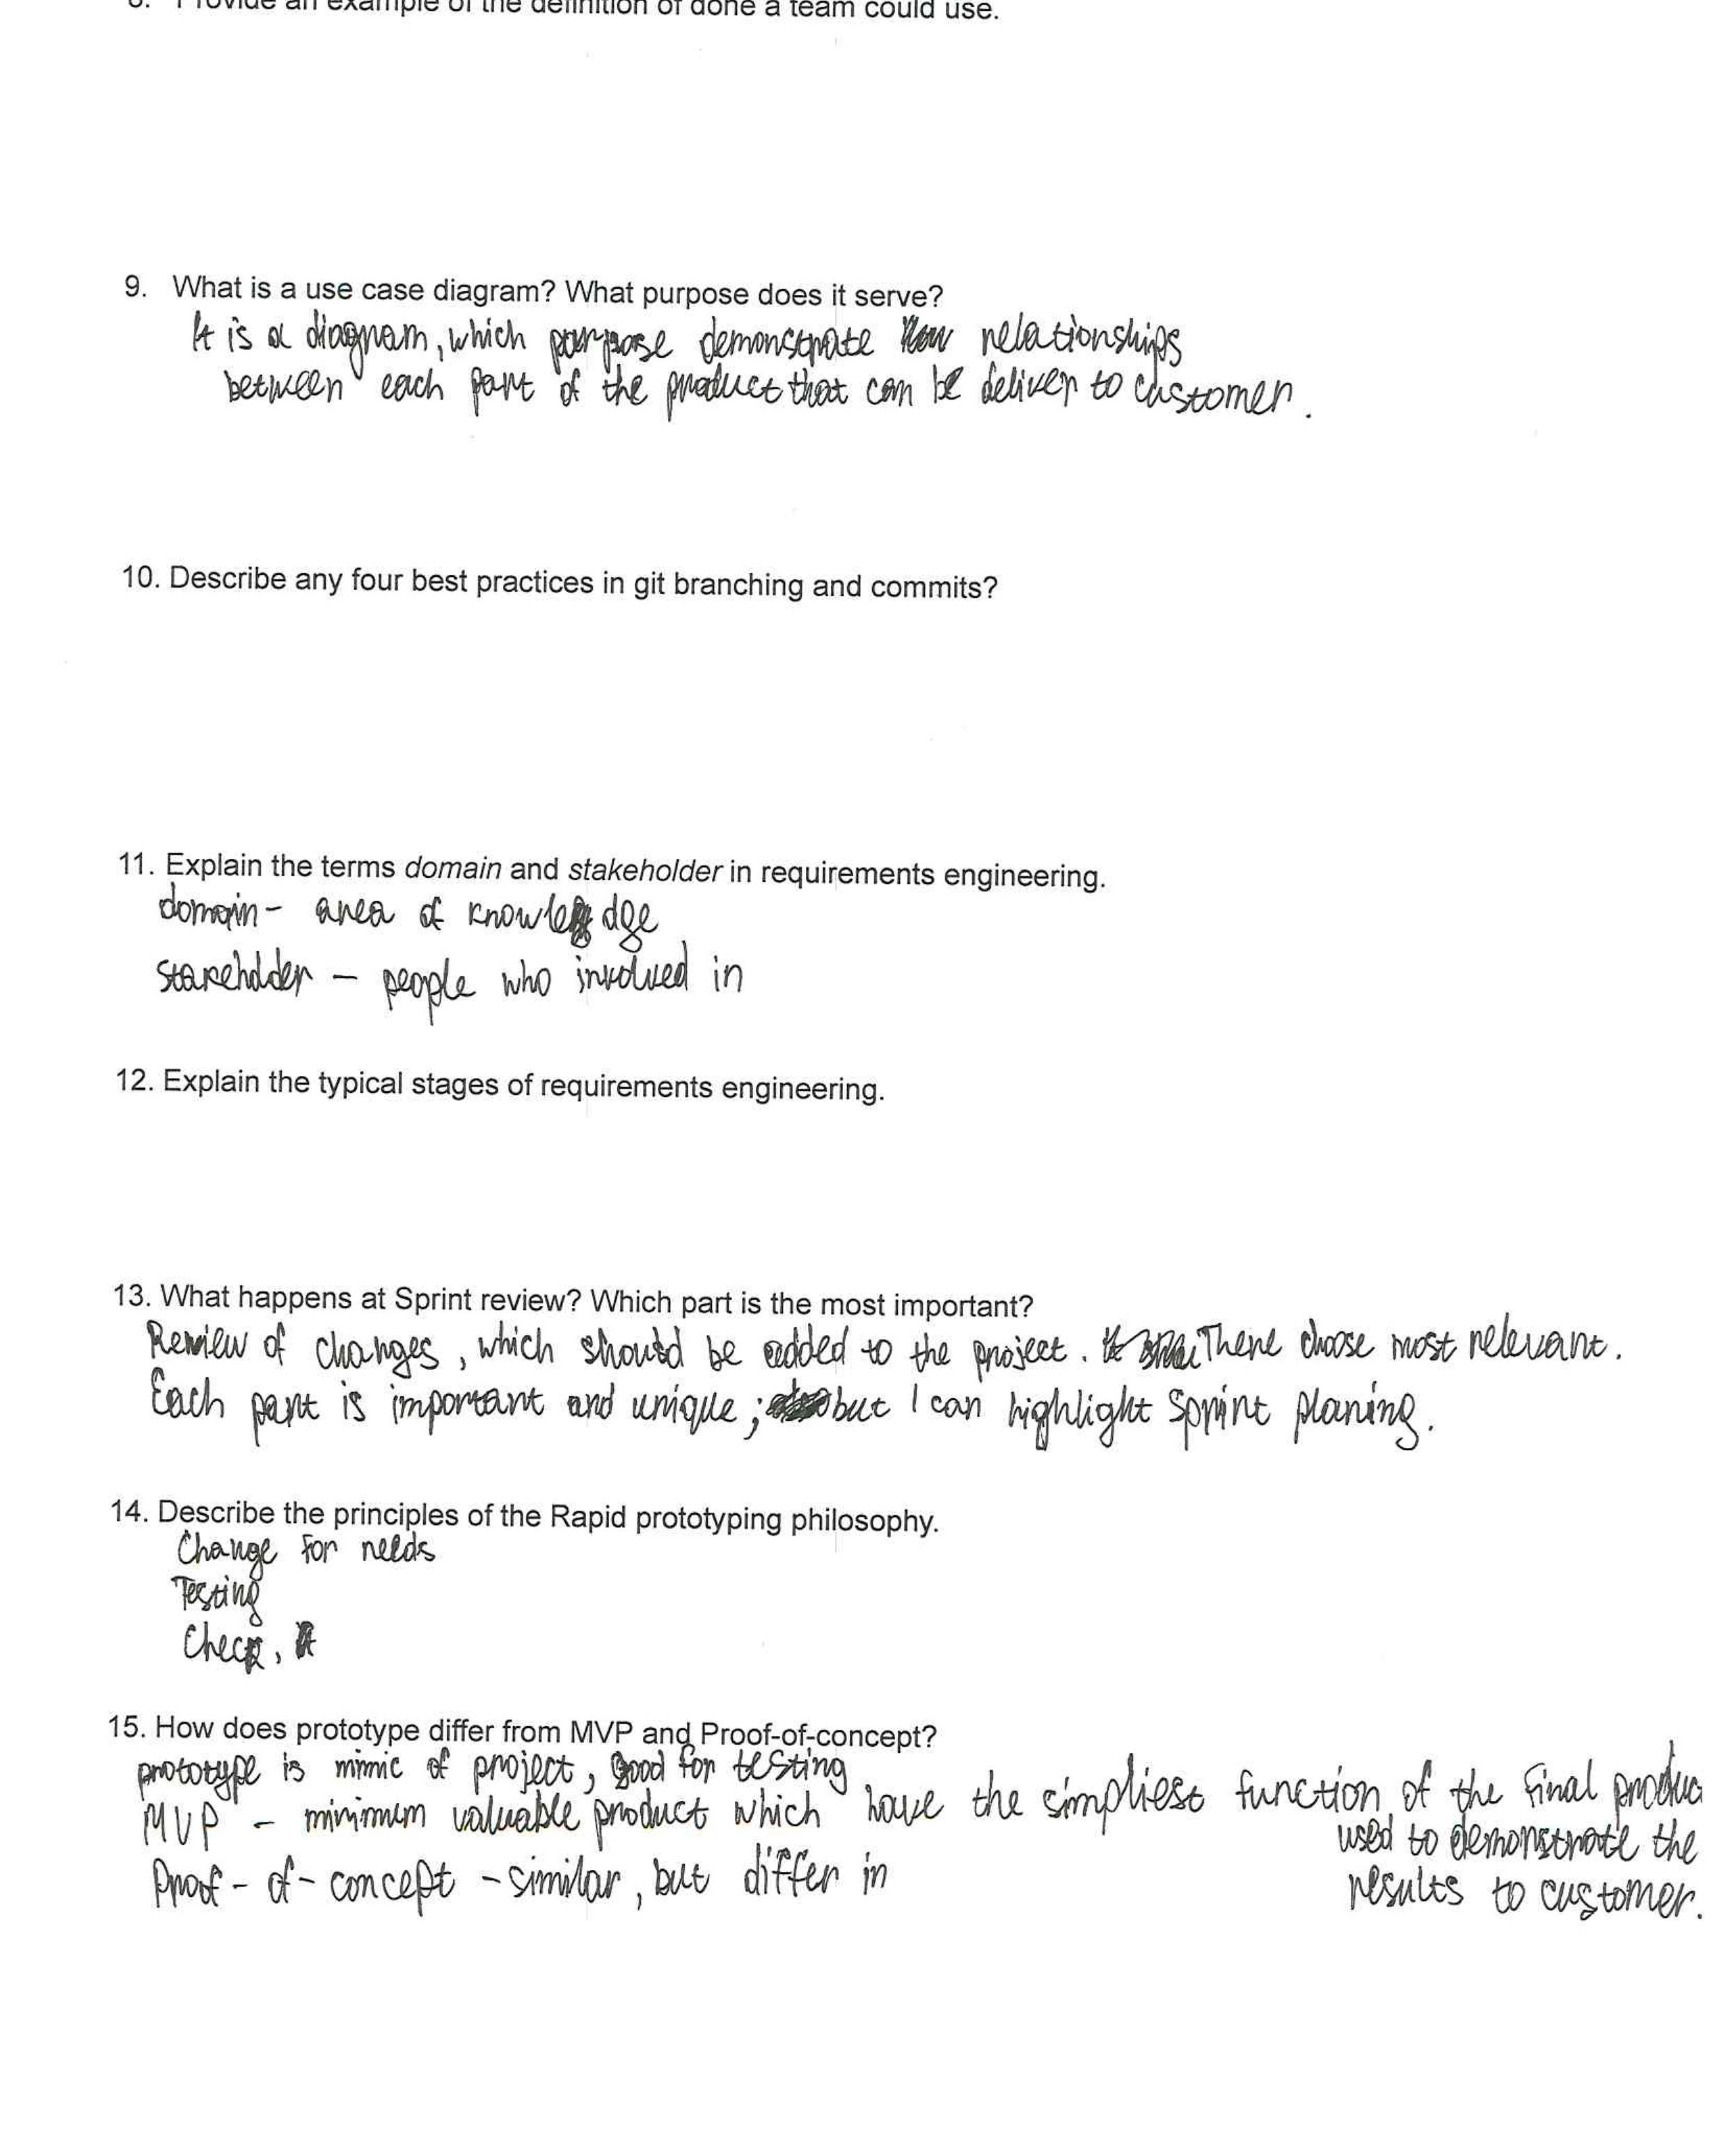 8. Provide an example of the definition of done a team could use.
9. What is a use case diagram? What purpose does it serve?
It is a diagram, which purpose demonstrate relationships
between each part of the product that can be deliver to customer.
10. Describe any four best practices in git branching and commits?
11. Explain the terms domain and stakeholder in requirements engineering.
domain - area of knowledge
stakeholder - people who involved in
12. Explain the typical stages of requirements engineering.
13. What happens at Sprint review? Which part is the most important?
Review of changes, which should be added to the project. There choose most relevant.
Each part is important and unique; but I can highlight Sprint planing.
14. Describe the principles of the Rapid prototyping philosophy.
Change for needs
Testing
Check,
15. How does prototype differ from MVP and Proof-of-concept?
prototype is mimic of project, good for testing
MVP - minimum valuable product which have the simpliest function of the final produc
used to demonstrate the
Proof-of-concept - similar, but differ in
results to customer.